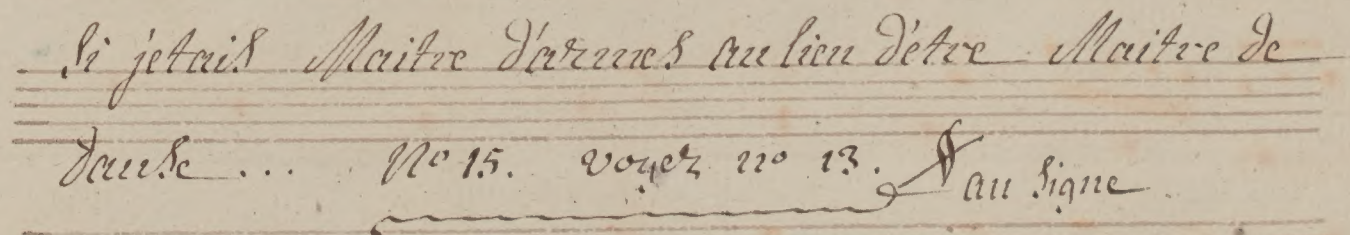 Si jetais Maitre d'armes au lieu d'être Maitre de
danse... No 15. voyez no 13. au signe